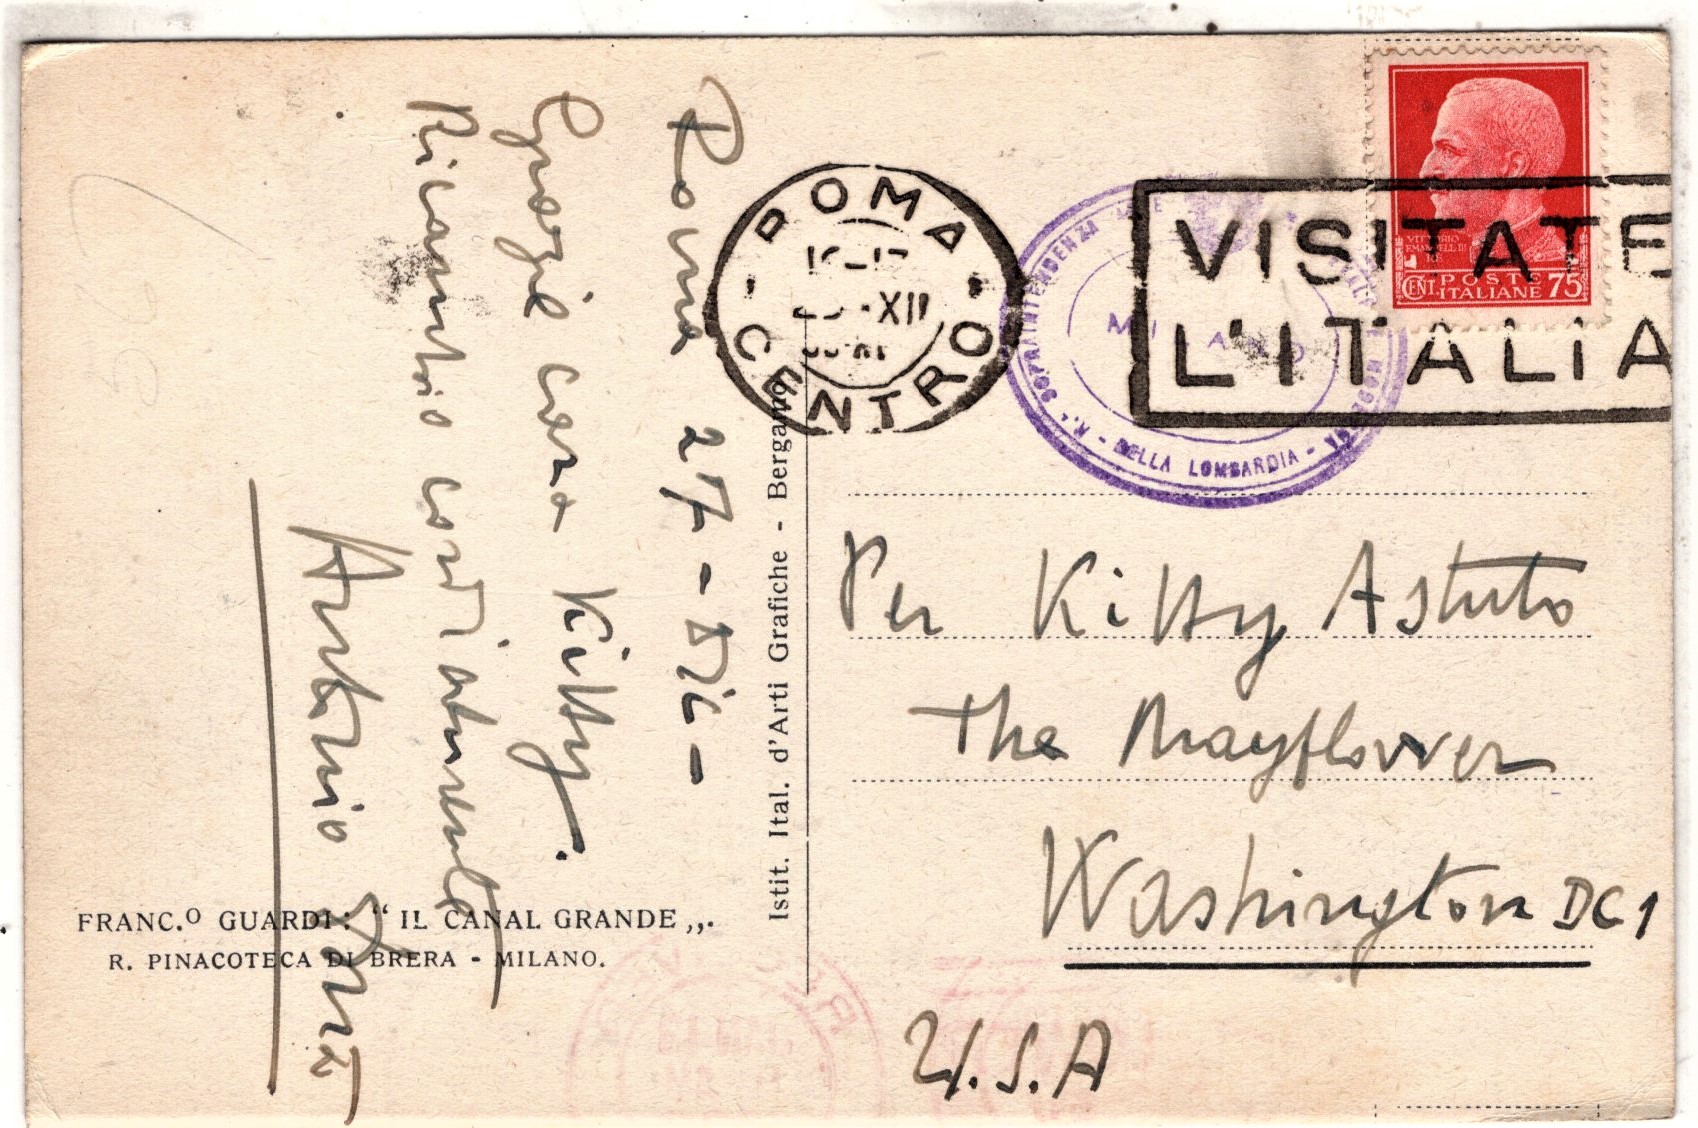 Roma 27 - Dic -
Grazie cara Kitty.
Ricambio cordialmente
Antonio
FRANC.º GUARDI: “ IL CANAL GRANDE „.
R. PINACOTECA DI BRERA - MILANO.
Istit. Ital. d'Arti Grafiche - Bergamo
ROMA
XII
CENTRO
VISITATE
L'ITALIA
R. SOPRAINTENDENZA
DELLA LOMBARDIA
MILANO
VITTORIO
EMANUELE III
CENT. POSTE
ITALIANE 75
Per Kitty Astuto
The Mayflower
Washington DC 1
U.S.A